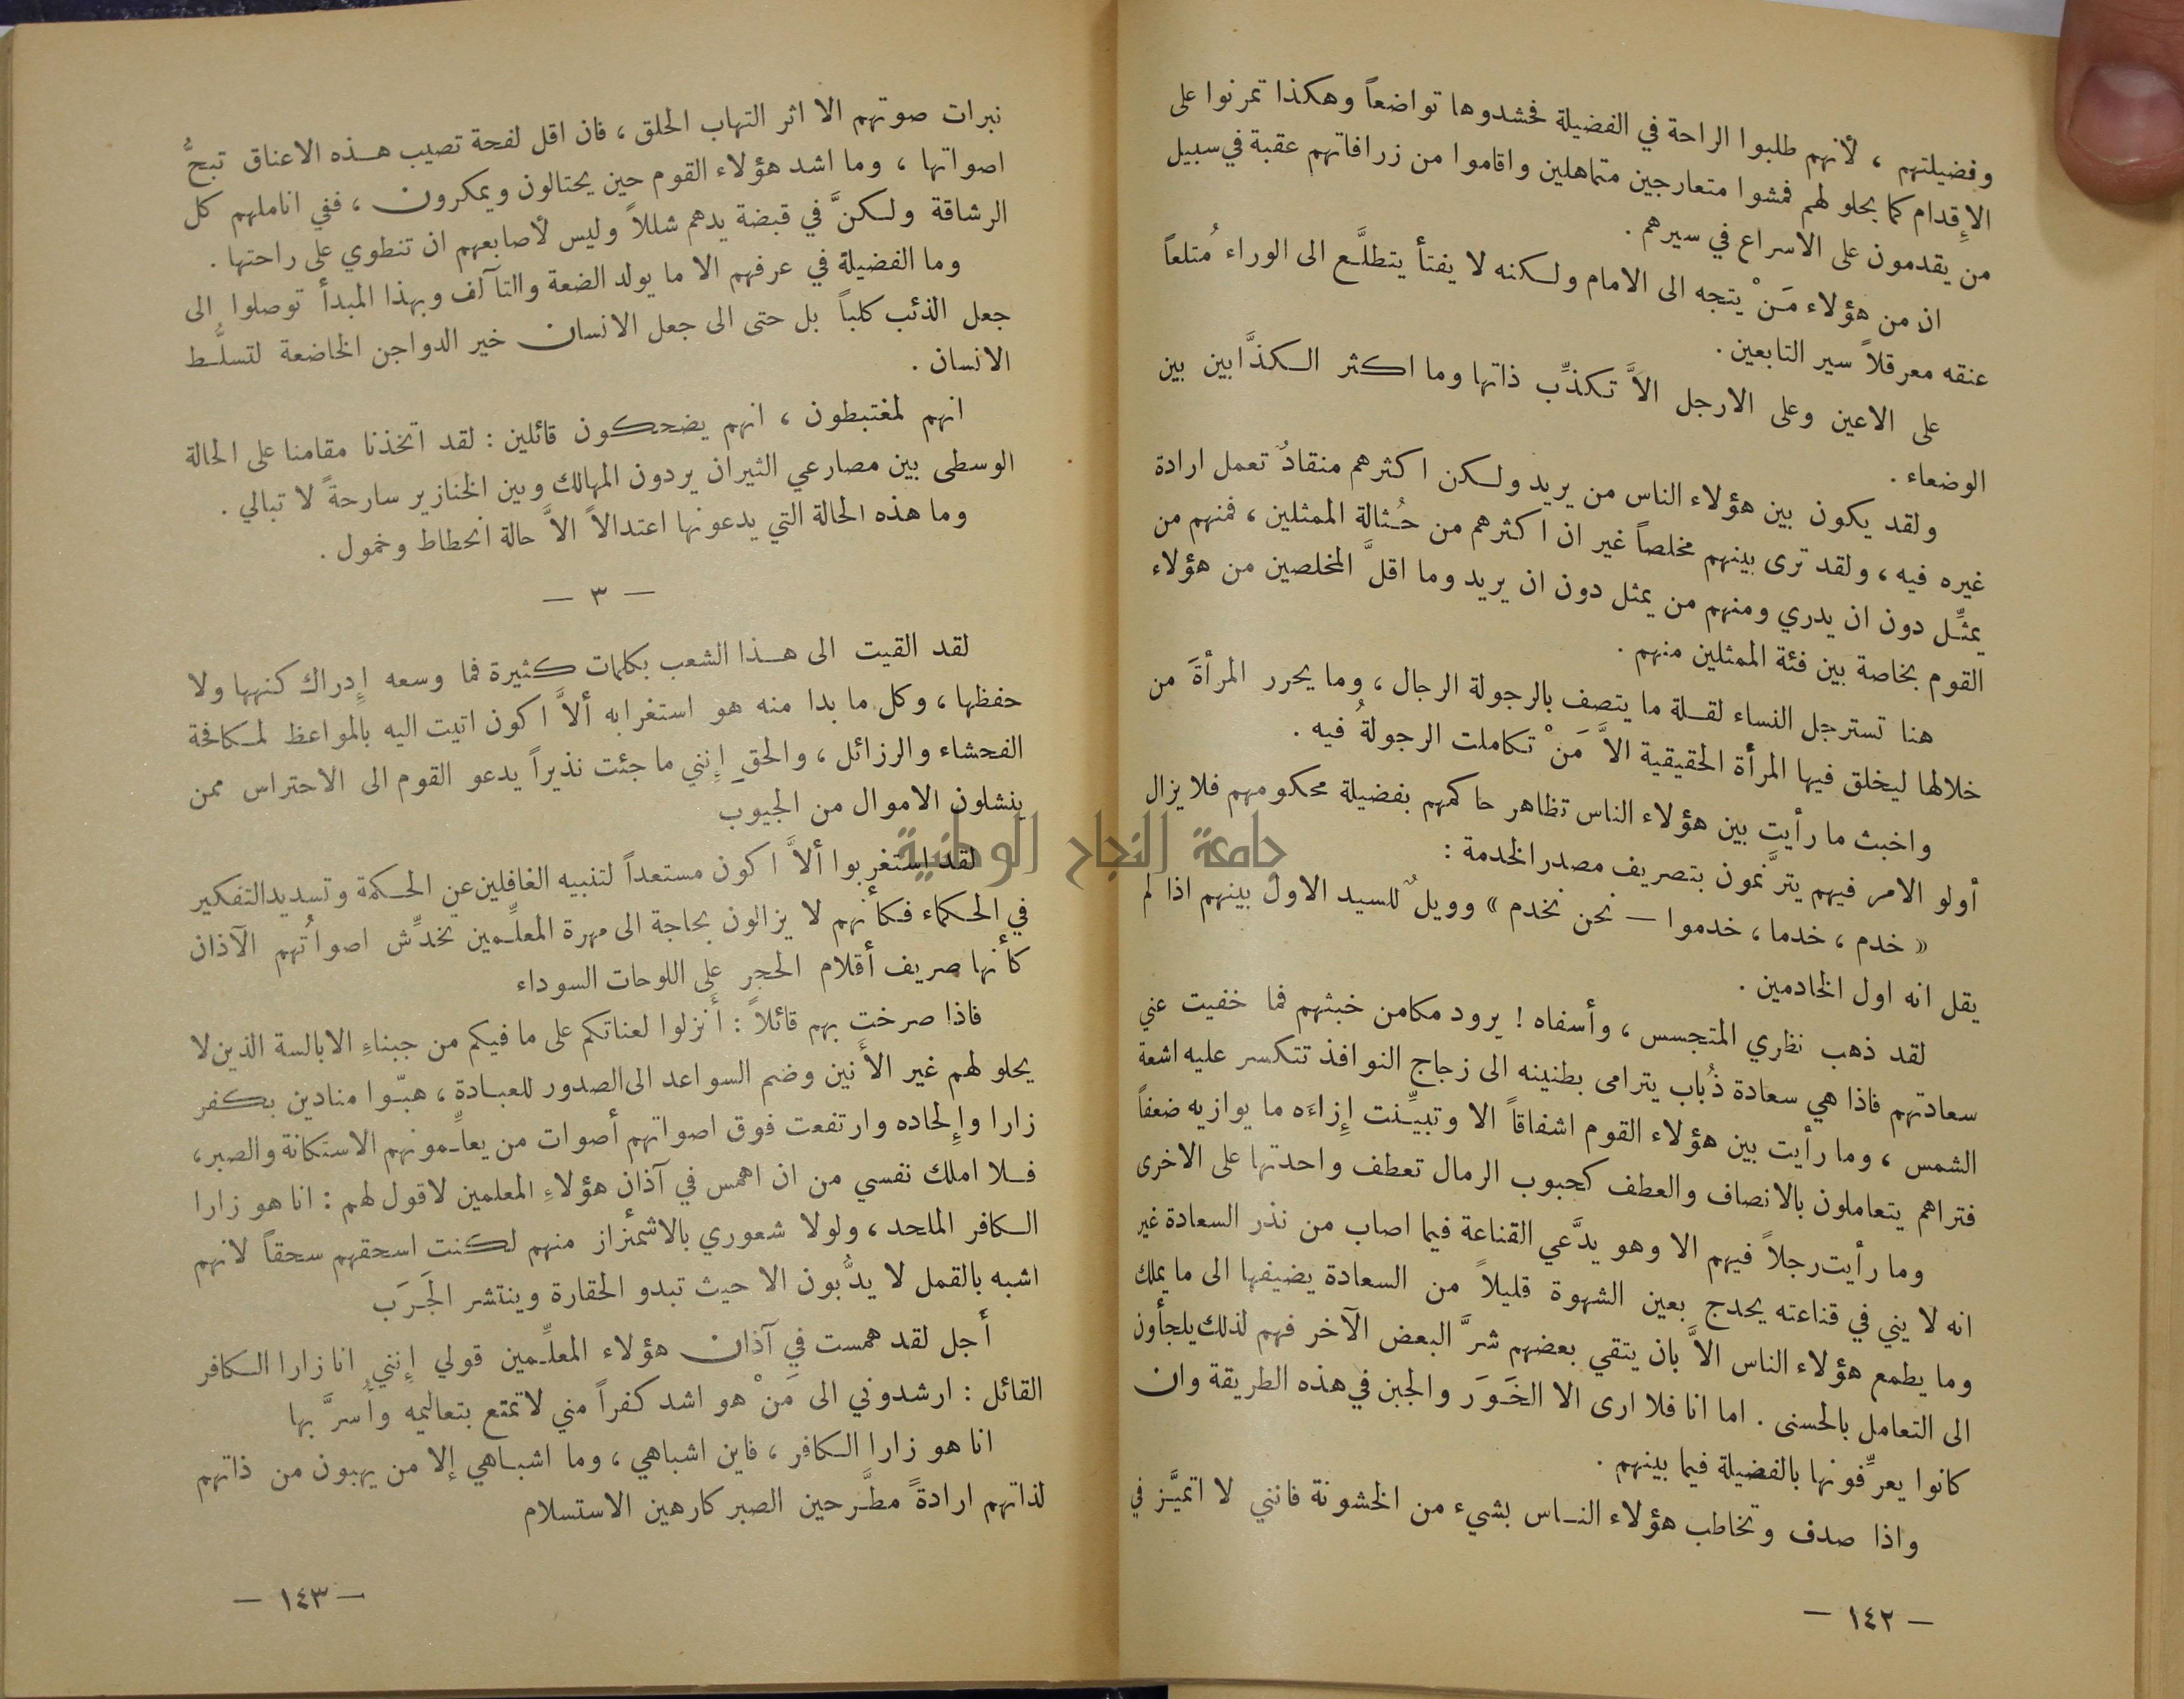 وفضيلتهم ، لأنهم طلبوا الراحة في الفضيلة فحشدوها تواضعاً وهكذا تمرنوا على
الإِقدام كما يحلو لهم فمشوا متعارجين متماهلين واقاموا من زرافاتهم عقبة في سبيل
من يقدمون على الاسراع في سيرهم .
ان من هؤلاء مَنْ يتجه الى الامام ولكنه لا يفتأ يتطلَّع الى الوراء مُتلعاً
عنقه معرقلاً سير التابعين .
على الاعين وعلى الارجل الاَّ تكذِّب ذاتها وما اكثر الكذَّابين بين
الوضعاء .
ولقد يكون بين هؤلاء الناس من يريد ولكن اكثرهم منقادٌ تعمل ارادة
غيره فيه ، ولقد ترى بينهم مخلصاً غير ان اكثرهم من حُثالة الممثلين ، فمنهم من
يمثِّل دون ان يدري ومنهم من يمثل دون ان يريد وما اقلَّ المخلصين من هؤلاء
القوم بخاصة بين فئة الممثلين منهم .
هنا تسترجل النساء لقلة ما يتصف بالرجولة الرجال ، وما يحرر المرأةَ من
خلالها ليخلق فيها المرأة الحقيقية الاَّ مَنْ تكاملت الرجولةُ فيه .
واخبث ما رأيت بين هؤلاء الناس تظاهر حاكمهم بفضيلة محكومهم فلا يزال
أولو الامر فيهم يترَّنمون بتصريف مصدر الخدمة :
« خدم ، خدما ، خدموا — نحن نخدم » وويلٌ للسيد الاول بينهم اذا لم
يقل انه اول الخادمين .
لقد ذهب نظري المتجسس ، وأسفاه ! يرود مكامن خبثهم فما خفيت عني
سعادتهم فاذا هي سعادة ذُباب يترامى بطنينه الى زجاج النوافذ تتكسر عليه اشعة
الشمس ، وما رأيت بين هؤلاء القوم اشفاقاً الا وتبيَّنت إِزاءَه ما يوازيه ضعفاً
فتراهم يتعاملون بالانصاف والعطف كحبوب الرمال تعطف واحدتها على الاخرى
وما رأيت رجلاً فيهم الا وهو يدَّعي القناعة فيما اصاب من نذر السعادة غير
انه لا يني في قناعته يحدج بعين الشهوة قليلاً من السعادة يضيفها الى ما يملك
وما يطمع هؤلاء الناس الاَّ بان يتقي بعضهم شرَّ البعض الآخر فهم لذلك يلجأون
الى التعامل بالحسنى . اما انا فلا ارى الا الخَوَر والجبن في هذه الطريقة وان
كانوا يعرِّفونها بالفضيلة فيما بينهم .
واذا صدف وتخاطب هؤلاء الناس بشيء من الخشونة فانني لا اتميَّز في
— ١٤٢ —
نبرات صوتهم الا اثر التهاب الحلق ، فان اقل لفحة تصيب هذه الاعناق تبحُّ
اصواتها ، وما اشد هؤلاء القوم حين يحتالون ويمكرون ، ففي اناملهم كل
الرشاقة ولكنَّ في قبضة يدهم شللاً وليس لأصابعهم ان تنطوي على راحتها .
وما الفضيلة في عرفهم الا ما يولد الضعة والتآلف وبهذا المبدأ توصلوا الى
جعل الذئب كلباً بل حتى الى جعل الانسان خير الدواجن الخاضعة لتسلُّط
الانسان .
انهم لمغتبطون ، انهم يضحكون قائلين : لقد اتخذنا مقامنا على الحالة
الوسطى بين مصارعي الثيران يردون المهالك وبين الخنازير سارحةً لا تبالي .
وما هذه الحالة التي يدعونها اعتدالاً الاَّ حالة انحطاط وخمول .
— ٣ —
لقد القيت الى هذا الشعب بكلمات كثيرة فما وسعه إِدراك كنهها ولا
حفظها ، وكل ما بدا منه هو استغرابه ألاَّ اكون اتيت اليه بالمواعظ لمكافحة
الفحشاء والرزائل ، والحق إِنني ما جئت نذيراً يدعو القوم الى الاحتراس ممن
ينشلون الاموال من الجيوب
لقد استغربوا ألاَّ اكون مستعداً لتنبيه الغافلين عن الحكمة وتسديد التفكير
في الحكماء فكأنهم لا يزالون بحاجة الى مهرة المعلِّمين تخدِّش اصواتُهم الآذان
كأنها صريف أقلام الحجر على اللوحات السوداء
فاذا صرخت بهم قائلاً : أَنزلوا لعناتكم على ما فيكم من جبناءِ الابالسة الذين لا
يحلو لهم غير الأَنين وضم السواعد الى الصدور للعبادة ، هبّوا منادين بكفر
زارا وإِلحاده وارتفعت فوق اصواتهم أصوات من يعلِّمونهم الاستكانة والصبر ،
فلا املك نفسي من ان اهمس في آذان هؤلاءِ المعلمين لاقول لهم : انا هو زارا
الكافر الملحد ، ولولا شعوري بالاشمئزاز منهم لكنت اسحقهم سحقاً لانهم
اشبه بالقمل لا يدُّبون الا حيث تبدو الحقارة وينتشر الجَرَب
أجل لقد همست في آذان هؤلاء المعلِّمين قولي إِنني انا زارا الكافر
القائل : ارشدوني الى مَنْ هو اشد كفراً مني لاتمتع بتعاليمه وأُسرَّ بها
انا هو زارا الكافر ، فاين اشباهي ، وما اشباهي إلا من يهبون من ذاتهم
لذاتهم ارادةً مطَّرحين الصبر كارهين الاستسلام
— ١٤٣ —
جامعة النجاح الوطنية